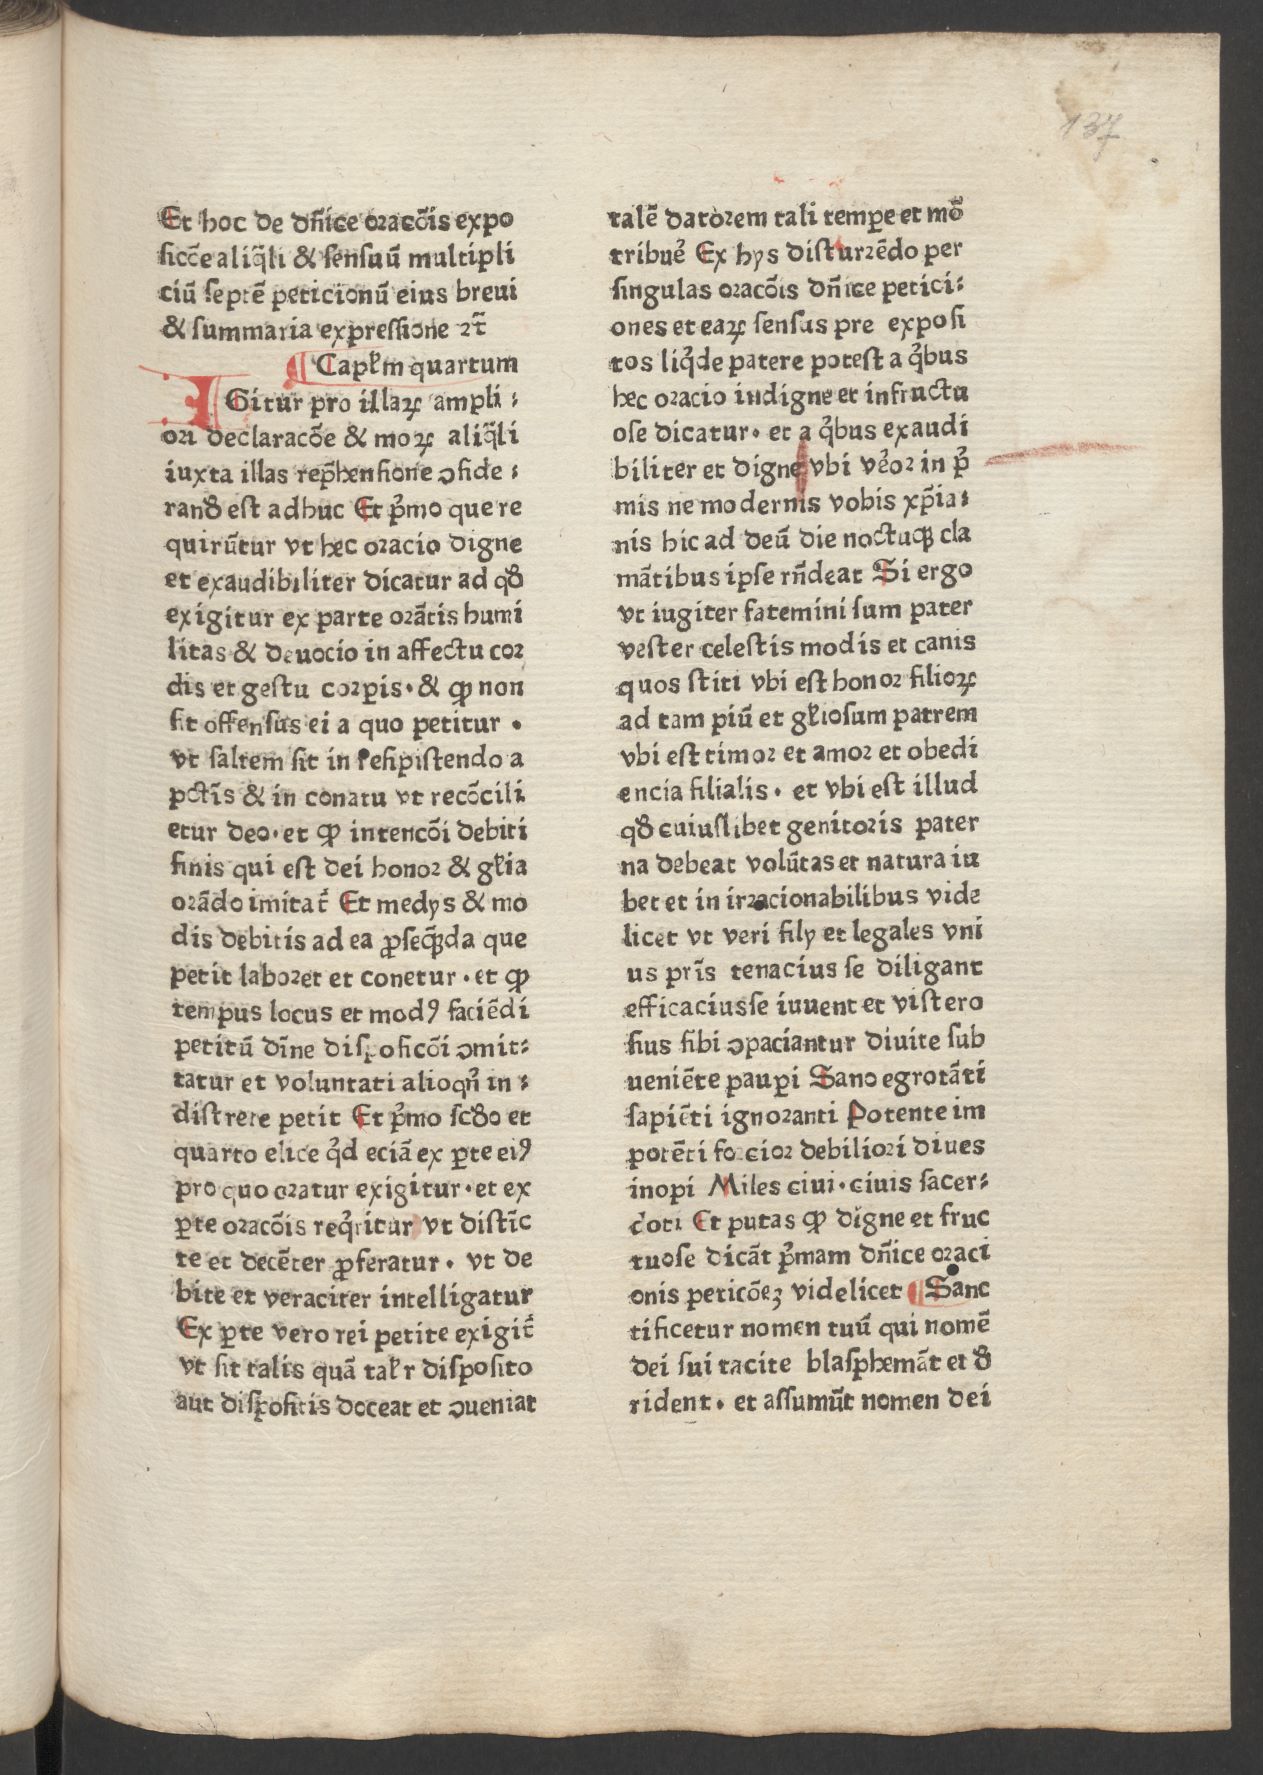 137
Et hoc de dn̄ice oracōis expo
sicc̄e aliq̄li & sensuū multipli
ciū septē peticionū eius breui
& summaria expressione ⁊c̄
Capl̄m quartum
IGitur pro illaꝝ ampli⸗
ori declaracōe & moꝝ aliq̄li
iuxta illas rep̄hensione ɔside⸗
rand̄ est adhuc Et pͥmo quere
quirūtur vt hec oracio digne
et exaudibiliter dicatur ad qd̄
exigitur ex parte orātis humi
litas & deuocio in affectu cor
dis et gestu corꝑis· & ꝙ non
sit offensus ei a quo petitur ·
vt saltem sit in resipistendo a
pctīs & in conatu vt recōcili
etur deo· et ꝙ intencōi debiti
finis qui est dei honor & gl̄ia
orādo imitat᷑ Et medys & mo
dis debitis ad ea ꝓseqn̄da que
petit laboret et conetur · et ꝙ
tempus locus et modꝰ faciēdi
petitū dīne disposicōi ɔmit⸗
tatur et voluntati alioqn̄ in⸗
distrete petit Et pͥmo scd̄o et
quarto elice qͥd eciā ex ꝑte eiꝰ
pro quo oratur exigitur· et ex
ꝑte oracōis reqͥritur vt distīc
te et decēter ꝓferatur· vt de
bite et veraciter intelligatur
Ex ꝑte vero rei petite exigit᷑
vt sit talis quā tal̄r disposito
aut dispositis doceat et ɔueniat
talē datorem tali tempe et mō
tribue᷑ Ex hys disturrēdo per
singulas oracōis dn̄ice petici⸗
ones et eaꝝ sensus pre exposi
tos liqͥde patere potest a qͥbus
hec oracio indigne et infructu
ose dicatur· et a qͥbus exaudi
biliter et digne vbi ve᷑or in pͥ
mis ne modernis vobis xp̄ia⸗
nis hic ad deū die noctuqꝫ cla
mātibus ipse rn̄deat Si ergo
vt iugiter fatemini sum pater
vester celestis modis et canis
quos stiti vbi est honor filioꝝ
ad tam piū et gl̄iosum patrem
vbi est timor et amor et obedi
encia filialis· et vbi est illud
qd̄ cuiuslibet genitoris pater
na debeat volūtas et natura iu
bet et in irracionabilibus vide
licet vt veri fily et legales vni
us pr̄is tenacius se diligant
efficacius se iuuent et vistero
sius sibi ɔpaciantur diuite sub
ueniēte pauꝑi Sano egrotāti
sapiēti ignoranti Potente im
potēti forcior debiliori diues
inopi Miles ciui· ciuis sacer⸗
doti Et putas ꝙ digne et fruc
tuose dicāt pͥmam dn̄ice oraci
onis peticōeꝫ videlicet Sanc
tificetur nomen tuū qui nomē
dei sui tacite blasphemāt et d̄
rident· et assumūt nomen dei